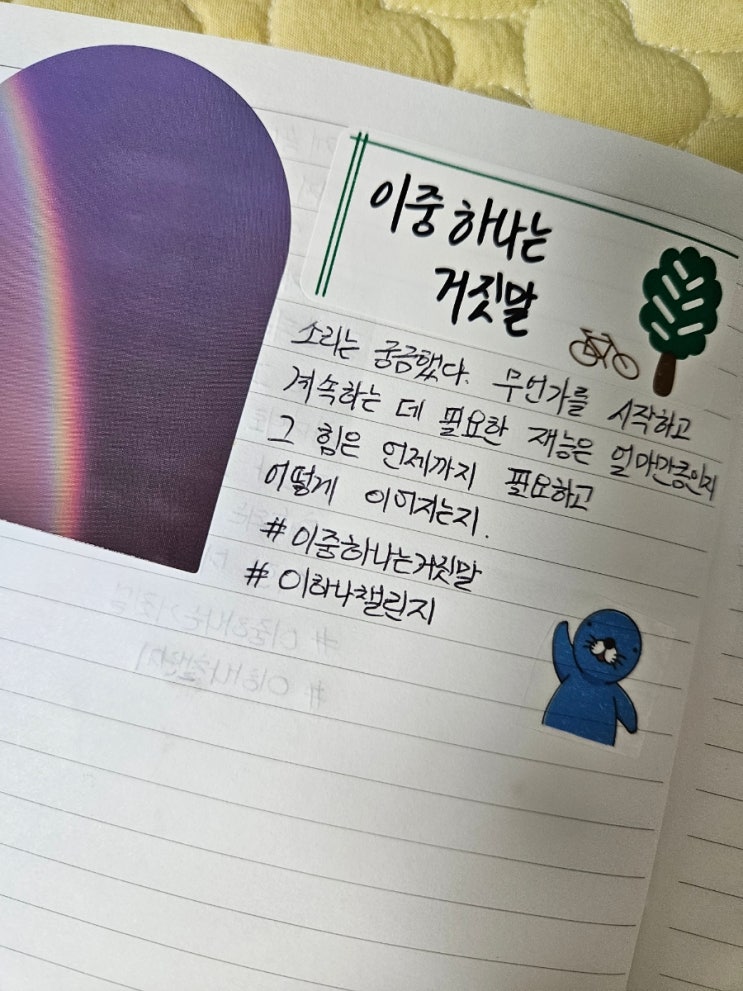 이중 하나는
거짓말
소리는 궁금했다. 무언가를 시작하고
계속하는 데 필요한 재능은 얼마만큼인지
그 힘은 언제까지 필요하고
어떻게 이어지는지.
# 이중하나는거짓말
# 이하나챌린지